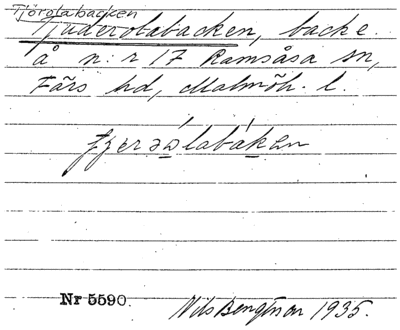 Tjörotabacken
Tjuderotabacken, backe.
å n:r 17 Ramsåsa sn,
Färs hd, Malmöh. l.
Nr 5590.
Nils Bengtson 1935.